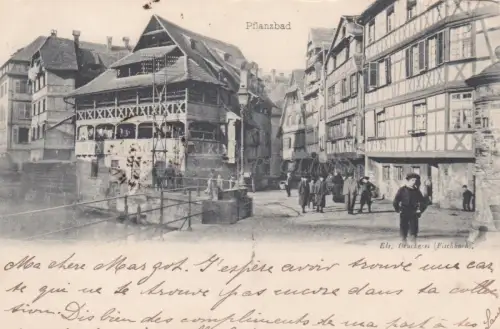 Pflanzbad
Els. Druckerei (Fischbach).
Ma chère Margot. J'espère avoir trouvé une car
te qui ne se trouve pas encore dans ta collec
tion. Dis bien des compliments de ma part à tes